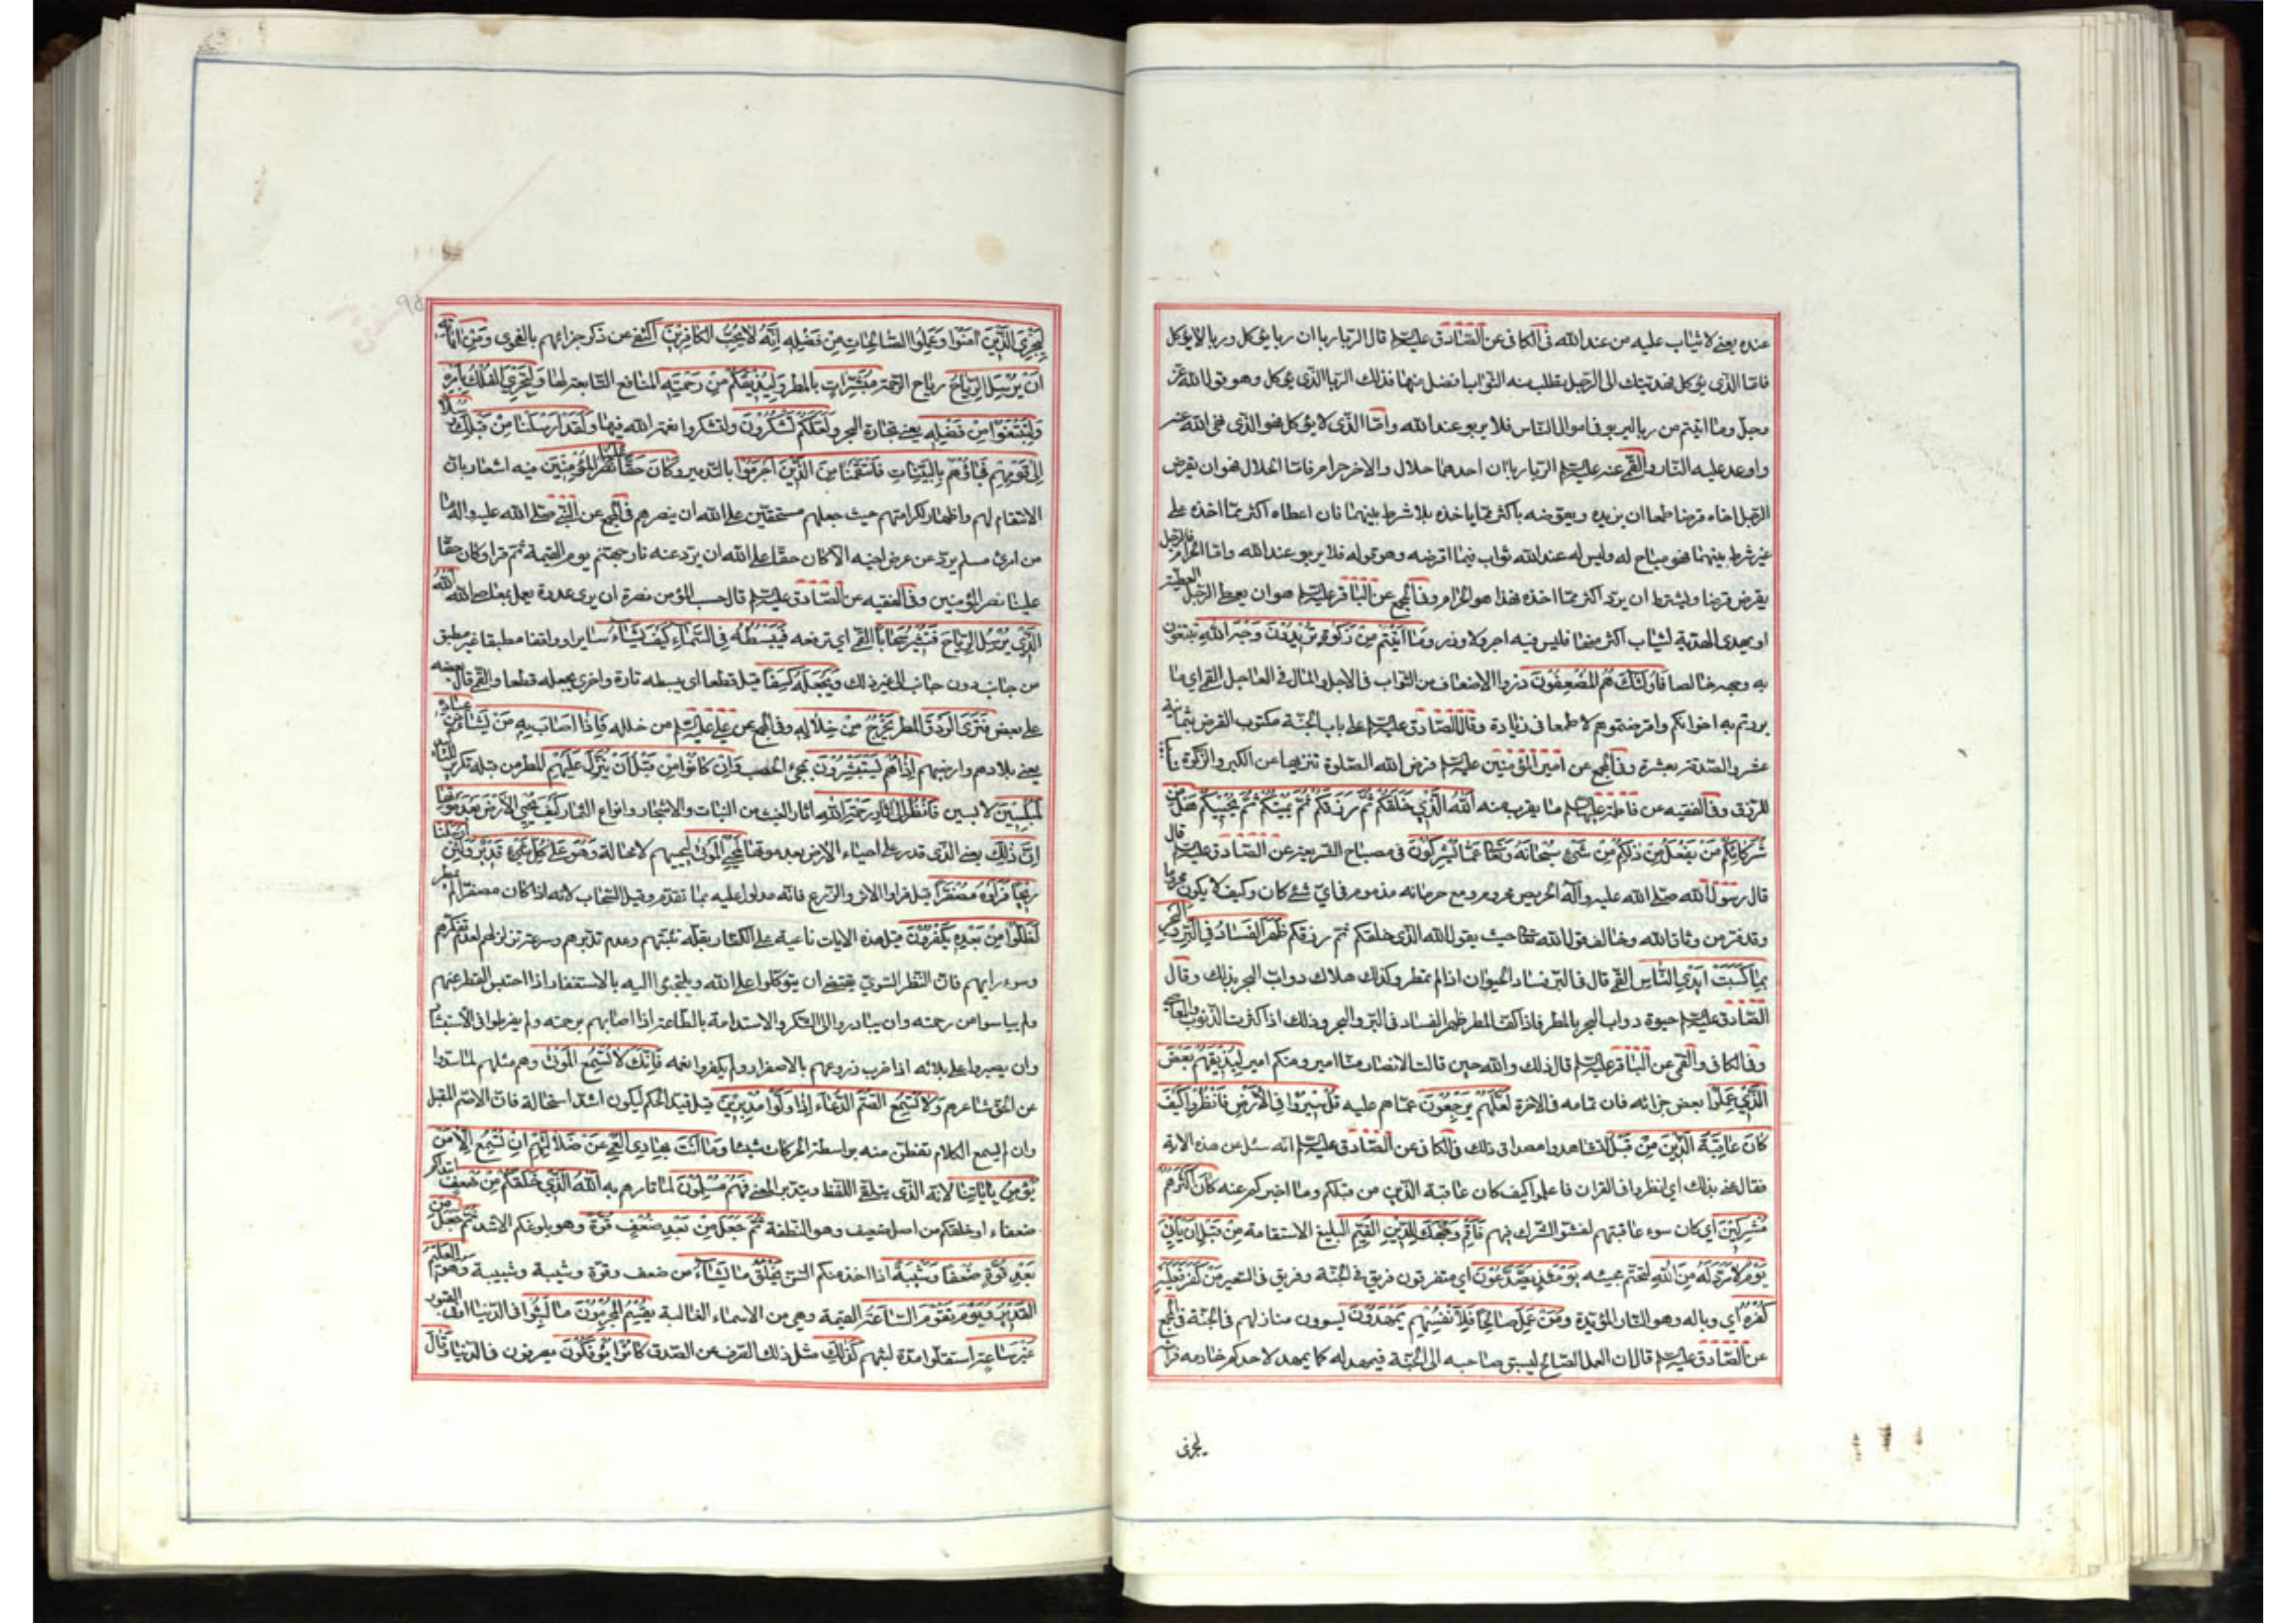 عنده يعني لا يثاب عليه من عند الله في الكافي عن الصادق عليه السلم قال الربا رباان ربا يؤكل وربا لا يؤكل
فاما الذي يؤكل فهديتك الى الرجل تطلب منه الثواب افضل منها فذلك الربا الذي يؤكل وهو قول الله عز
وجل وما اتيتم من ربا ليربو في اموال الناس فلا يربو عند الله واما الذي لا يؤكل فهو الذي نهى الله عنه
واوعد عليه النار والقمي عنه عليه السلم الربا رباان احدهما حلال والاخر حرام فاما الحلال فهو ان يقرض
الرجل اخاه قرضا طمعا ان يزيده ويعوضه باكثر مما ياخذه بلا شرط بينهما فان اعطاه اكثر مما اخذه على
غير شرط بينهما فهو مباح له وليس له عند الله ثواب فيما اقرضه وهو قوله فلا يربو عند الله واما الحرام فالرجل
يقرض قرضا ويشترط ان يرد اكثر مما اخذه فهذا هو الحرام وفي المجمع عن الباقر عليه السلم هو ان يعطي الرجل العطية
او يهدي الهدية ليثاب اكثر منها فليس فيه اجر ولا وزر وَمَا آتَيْتُمْ مِنْ زَكٰوةٍ تُرِيدُونَ وَجْهَ اللّهِ تبتغون
به وجهه خالصا فَاُولٰئِكَ هُمُ الْمُضْعِفُونَ ذووا الاضعاف من الثواب في الاجل والمال في العاجل القمي اي ما
بررتم به اخوانكم واقرضتموهم لا طمعا في زيادة وقال الصادق عليه السلم على باب الجنة مكتوب القرض بثمانية
عشر والصدقة بعشرة وفي المجمع عن امير المؤمنين عليه السلم فرض الله الصلوة تنزيها عن الكبر والزكوة
للرزق وفي الفقيه عن فاطمة عليها السلم ما يقرب منه اَللّهُ الَّذِي خَلَقَكُمْ ثُمَّ رَزَقَكُمْ ثُمَّ يُمِيتُكُمْ ثُمَّ يُحْيِيكُمْ هَلْ مِنْ
شُرَكَائِكُمْ مَنْ يَفْعَلُ مِنْ ذٰلِكُمْ مِنْ شَيْءٍ سُبْحَانَهُ وَتَعَالىٰ عَمَّا يُشْرِكُونَ في مصباح الشريعة عن الصادق عليه السلم قال
قال رسول الله صلى الله عليه وآله الحريص محروم ومع حرمانه مذموم في اي شئ كان وكيف لا يكون محروما
وقد فر من وثاق الله وخالف قول الله تعالى حيث يقول الله الذي خلقكم ثم رزقكم ظَهَرَ الْفَسَادُ فِي الْبَرِّ وَالْبَحْرِ
بِمَا كَسَبَتْ اَيْدِي النَّاسِ القمي قال في البر فساد الحيوان اذا لم يمطر وكذلك هلاك دواب البحر بذلك وقال
الصادق عليه السلم حيوة دواب البحر بالمطر فاذا كف المطر ظهر الفساد في البر والبحر وذلك اذا كثرت الذنوب والمعاصي
وفي الكافي والقمي عن الباقر عليه السلم قال ذلك والله حين قالت الانصار منا امير ومنكم امير لِيُذِيقَهُمْ بَعْضَ
الَّذِي عَمِلُوا بعض جزائه فان تمامه في الاخرة لَعَلَّهُمْ يَرْجِعُونَ عما هم عليه قُلْ سِيرُوا فِي الْاَرْضِ فَانْظُرُوا كَيْفَ
كَانَ عَاقِبَةُ الَّذِينَ مِنْ قَبْلُ لتشاهدوا مصداق ذلك في الكافي عن الصادق عليه السلم انه سئل عن هذه الاية
فقال عنى بذلك اي انظروا في القران فاعلموا كيف كان عاقبة الذين من قبلكم وما اخبركم عنه كَانَ اَكْثَرُهُمْ
مُشْرِكِينَ اي كان سوء عاقبتهم لفشو الشرك فيهم فَاَقِمْ وَجْهَكَ لِلدِّينِ الْقَيِّمِ البليغ الاستقامة مِنْ قَبْلِ اَنْ يَاْتِيَ
يَوْمٌ لَا مَرَدَّ لَهُ مِنَ اللّهِ لتحتم مجيئه يَوْمَئِذٍ يَصَّدَّعُونَ اي متفرقون فريق في الجنة وفريق في السعير مَنْ كَفَرَ فَعَلَيْهِ
كُفْرُهُ اي وباله وهو النار المؤبدة وَمَنْ عَمِلَ صَالِحًا فَلِاَنْفُسِهِمْ يَمْهَدُونَ يسوون منازلهم في الجنة في المجمع
عن الصادق عليه السلم قال ان العمل الصالح ليسبق صاحبه الى الجنة فيمهد له كما يمهد لاحدكم خادمه فراشه
ليجزي
لِيَجْزِيَ الَّذِينَ آمَنُوا وَعَمِلُوا الصَّالِحَاتِ مِنْ فَضْلِهِ اِنَّهُ لَا يُحِبُّ الْكَافِرِينَ اكتفى عن ذكر جزائهم بالفحوى وَمِنْ آيَاتِهِ
اَنْ يُرْسِلَ الرِّيَاحَ رياح الرحمة مُبَشِّرَاتٍ بالمطر وَلِيُذِيقَكُمْ مِنْ رَحْمَتِهِ المنافع التابعة لها وَلِتَجْرِيَ الْفُلْكُ بِاَمْرِهِ
وَلِتَبْتَغُوا مِنْ فَضْلِهِ يعني تجارة البحر وَلَعَلَّكُمْ تَشْكُرُونَ ولتشكروا نعمة الله فيها وَلَقَدْ اَرْسَلْنَا مِنْ قَبْلِكَ رُسُلًا
اِلىٰ قَوْمِهِمْ فَجَاؤُهُمْ بِالْبَيِّنَاتِ فَانْتَقَمْنَا مِنَ الَّذِينَ اَجْرَمُوا بالتدمير وَكَانَ حَقًّا عَلَيْنَا نَصْرُ الْمُؤْمِنِينَ فيه اشعار بان
الانتقام لهم واظهار لكرامتهم حيث جعلهم مستحقين على الله ان ينصرهم في المجمع عن النبي صلى الله عليه واله ما
من امرئ مسلم يرد عن عرض اخيه الا كان حقا على الله ان يرد عنه نار جهنم يوم القيمة ثم قرأ وكان حقا
علينا نصر المؤمنين وفي الفقيه عن الصادق عليه السلم قال حسب المؤمن نصرة ان يرى عدوه يعمل بمعاصي الله اللّهُ
الَّذِي يُرْسِلُ الرِّيَاحَ فَتُثِيرُ سَحَابًا القمي اي ترفعه فَيَبْسُطُهُ فِي السَّمَاءِ كَيْفَ يَشَاءُ سايرا وواقفا مطبقا وغير مطبق
من جانب دون جانب الى غير ذلك وَيَجْعَلُهُ كِسَفًا قيل قطعا اي يبسطه تارة واخرى يجعله قطعا والقمي قال بعضه
على بعض فَتَرَى الْوَدْقَ المطر يَخْرُجُ مِنْ خِلَالِهِ وفي المجمع عن علي عليه السلم من خلله فَاِذَا اَصَابَ بِهِ مَنْ يَشَاءُ مِنْ عِبَادِهِ
يعني بلادهم واراضيهم اِذَا هُمْ يَسْتَبْشِرُونَ بمجئ الخصب وَاِنْ كَانُوا مِنْ قَبْلِ اَنْ يُنَزَّلَ عَلَيْهِمْ المطر من قبله تكرير للتأكيد
لَمُبْلِسِينَ لايسين فَانْظُرْ اِلىٰ آثَارِ رَحْمَةِ اللّهِ اثار الغيث من النبات والاشجار وانواع الثمار كَيْفَ يُحْيِي الْاَرْضَ بَعْدَ مَوْتِهَا
اِنَّ ذٰلِكَ يعني الذي قدر على احياء الارض بعد موتها لَمُحْيِي الْمَوْتىٰ لمحييهم لا محالة وَهُوَ عَلىٰ كُلِّ شَيْءٍ قَدِيرٌ وَلَئِنْ اَرْسَلْنَا
رِيحًا فَرَاَوْهُ مُصْفَرًّا قيل فراوا الاثر والزرع فانه مدلول عليه بما تقدم وقيل السحاب لانه اذا كان مصفرا لم يمطر
لَظَلُّوا مِنْ بَعْدِهِ يَكْفُرُونَ قيل هذه الايات ناعية على الكفار بقلة تثبتهم وعدم تدبرهم وسرعة تزلزلهم لعدم تفكرهم
وسوء رايهم فان النظر السوي يقتضي ان يتوكلوا على الله ويلتجئوا اليه بالاستغفار اذا احتبس القطر عنهم
ولم ييأسوا من رحمته وان يبادروا الى الشكر والاستدامة بالطاعة اذا اصابهم برحمته ولم يفرطوا في الاستبشار
وان يصبروا على بلائه اذا ضرب زروعهم بالاصفرار ولم يكفروا نعمه فَاِنَّكَ لَا تُسْمِعُ الْمَوْتىٰ وهم مثلهم لما سدوا
عن الحق مشاعرهم وَلَا تُسْمِعُ الصُّمَّ الدُّعَاءَ اِذَا وَلَّوْا مُدْبِرِينَ قيل قيد الحكم ليكون اشد استحالة فان الاصم المقبل
وان لم يسمع الكلام تفطن منه بواسطة الحركات شيئا وَمَا اَنْتَ بِهَادِي الْعُمْيِ عَنْ ضَلَالَتِهِمْ اِنْ تُسْمِعُ اِلَّا مَنْ
يُؤْمِنُ بِآيَاتِنَا لانه الذي يتلقى اللفظ ويتدبر المعنى فَهُمْ مُسْلِمُونَ لما تامرهم به اَللّهُ الَّذِي خَلَقَكُمْ مِنْ ضَعْفٍ
ضعفاء او خلقكم من اصل ضعيف وهو النطفة ثُمَّ جَعَلَ مِنْ بَعْدِ ضَعْفٍ قُوَّةً وهو بلوغكم الاشد ثُمَّ جَعَلَ مِنْ
بَعْدِ قُوَّةٍ ضَعْفًا وَشَيْبَةً اذا اخذ منكم السن يَخْلُقُ مَا يَشَاءُ من ضعف وقوة وشيبة وشبيبة وَهُوَ الْعَلِيمُ
الْقَدِيرُ وَيَوْمَ تَقُومُ السَّاعَةُ القيمة وهي من الاسماء الغالبة يُقْسِمُ الْمُجْرِمُونَ مَا لَبِثُوا في الدنيا او في القبور
غَيْرَ سَاعَةٍ استقلوا مدة لبثهم كَذٰلِكَ مثل ذلك الصرف عن الصدق كَانُوا يُؤْفَكُونَ يصرفون في الدنيا وَقَالَ